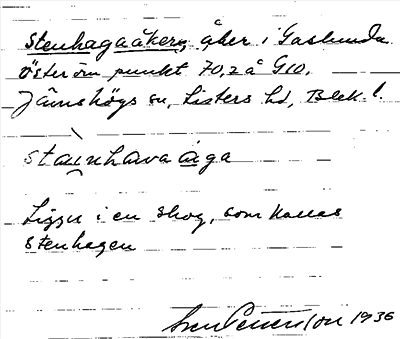 Stenhagaåkern, åker i Gaslunda
öster om punkt 70,2 å G10.
Jämshögs sn, Listers hd, Blek. l.
staunhavaåga
Ligger i en skog, som kallas
Stenhagen
Sven Petersson 1936